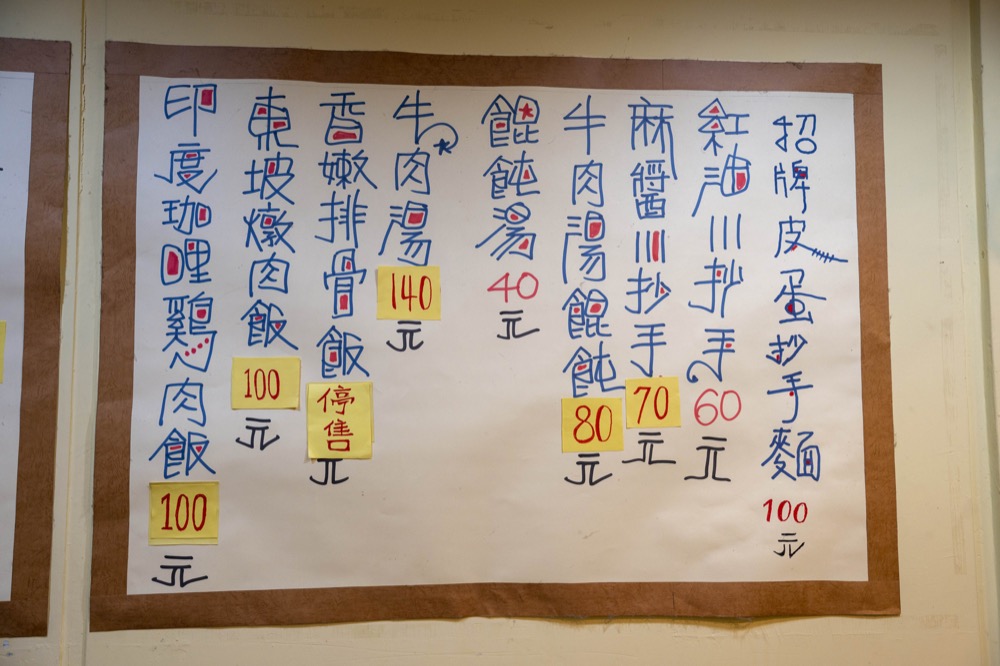 招牌皮蛋抄手麵100元
紅油川抄手60元
麻醬川抄手70元
牛肉湯餛飩80元
餛飩湯40元
牛肉湯140元
香嫩排骨飯停售元
東坡燉肉飯100元
印度珈哩鷄肉飯100元